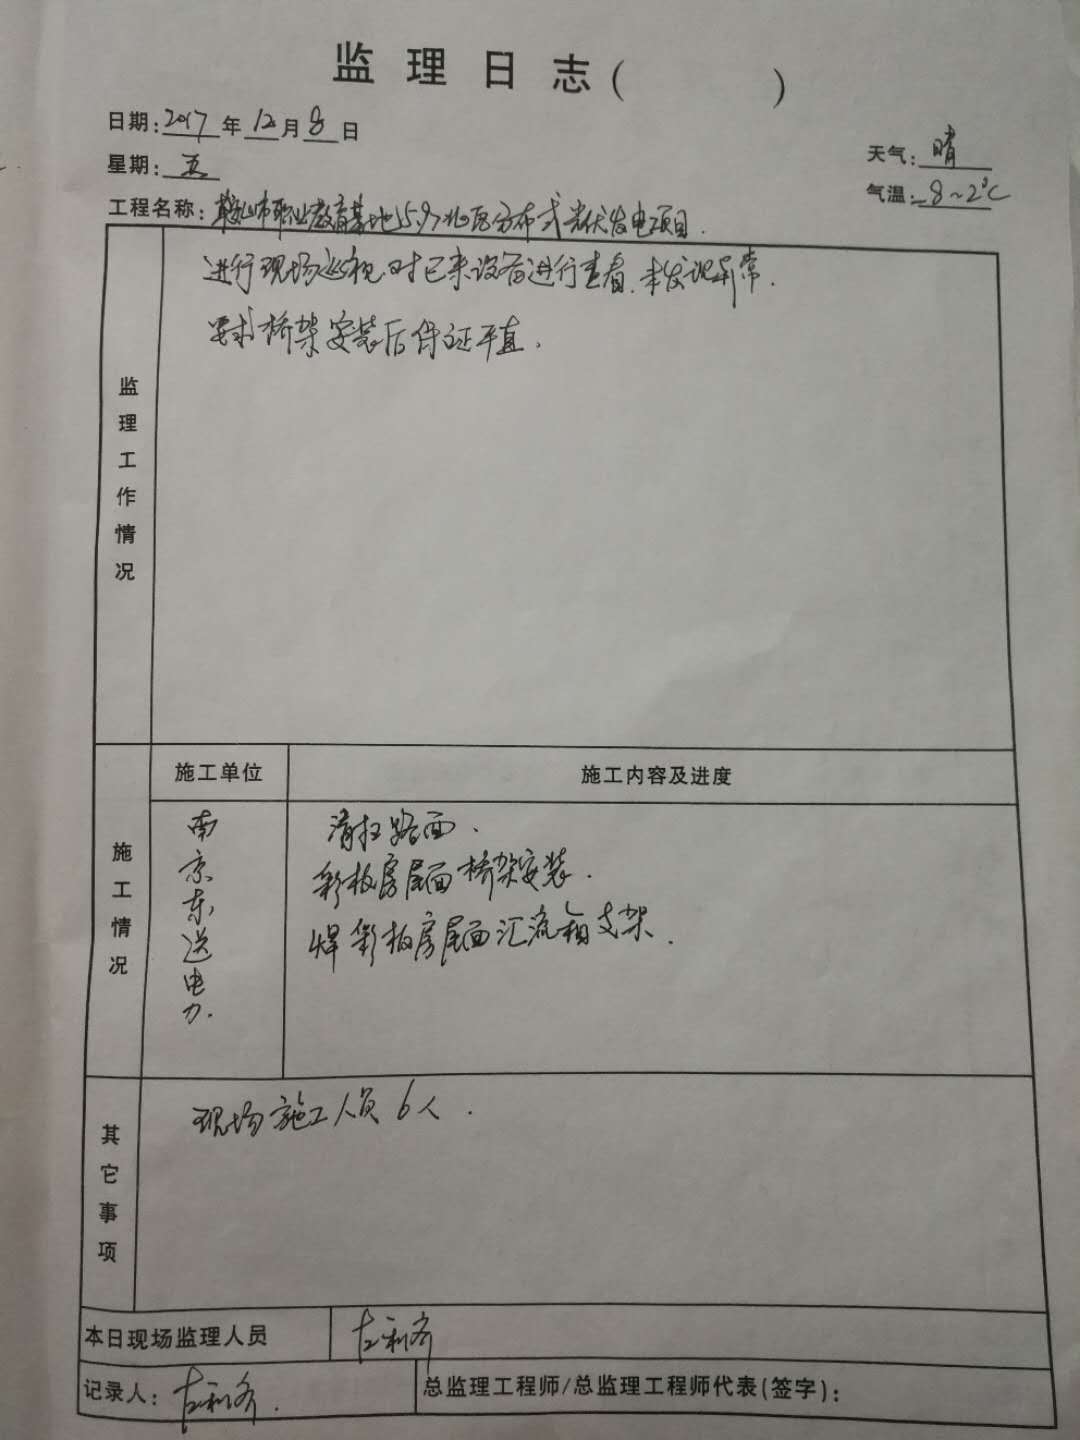 监理日志(          )
日期:2017年12月8日
星期:五
天气:晴
气温:-8~2℃
工程名称:鞍山市职业教育基地15.97兆瓦分布式光伏发电项目.
监理工作情况
进行现场巡视.对已来设备进行查看.未发现异常.
要求桥架安装后保证平直.
施工情况
施工单位
施工内容及进度
南京东送电力.
清扫路面.
彩板房屋面桥架安装.
焊彩板房屋面汇流箱支架.
其它事项
现场施工人员6人.
本日现场监理人员
记录人:
总监理工程师/总监理工程师代表(签字):